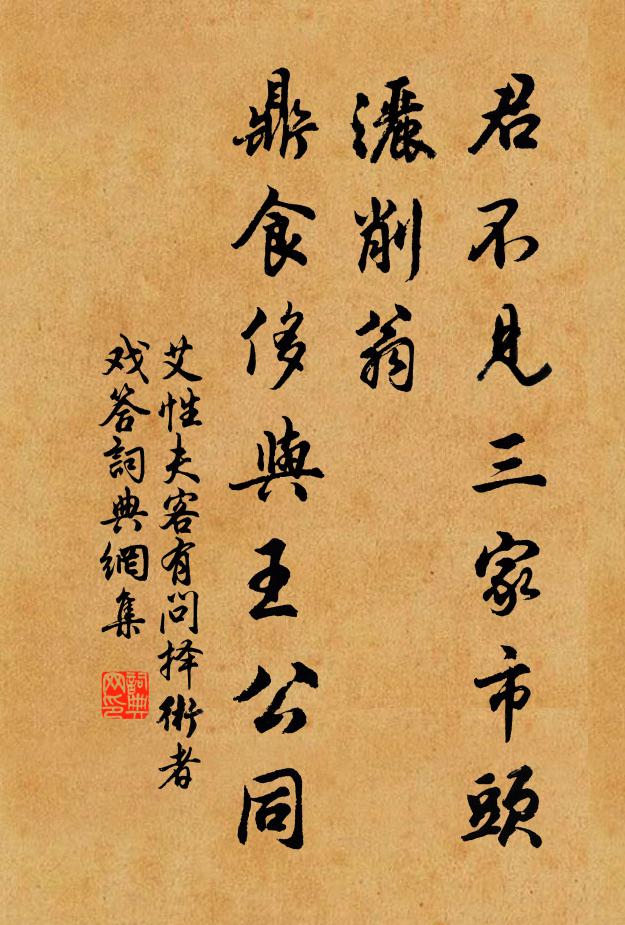 君不见三家市頭
灑削翁
鼎食侈與王公同
艾性夫客有问择術者
戏答詞典網集
詞典网印